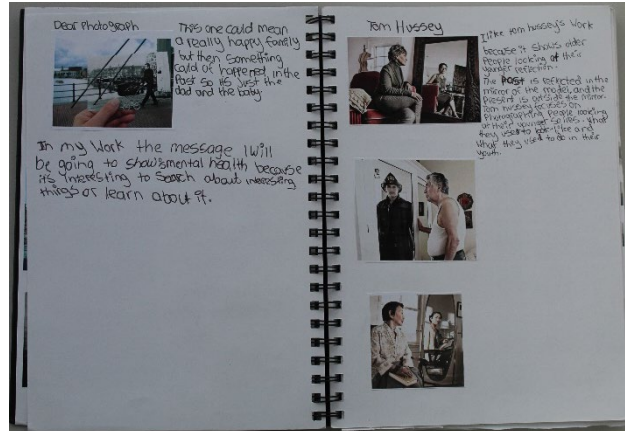 Dear Photograph
This one could mean
a really happy family
but then something
could of happened in the
Past so its just the
dad and the baby.
In my work the message I will
be going to show is mental health because
its interesting to search about interesting
things or learn about it.
Tom Hussey
I like tom hussey's work
because it shows older
People looking at their
younger reflection.
The Past is reflected in the
mirror of the model, and the
Present is outside the mirror.
Tom hussey focuses on
Photographing People looking
at their younger selves. what
they used to look like and
what they used to do in their
youth.